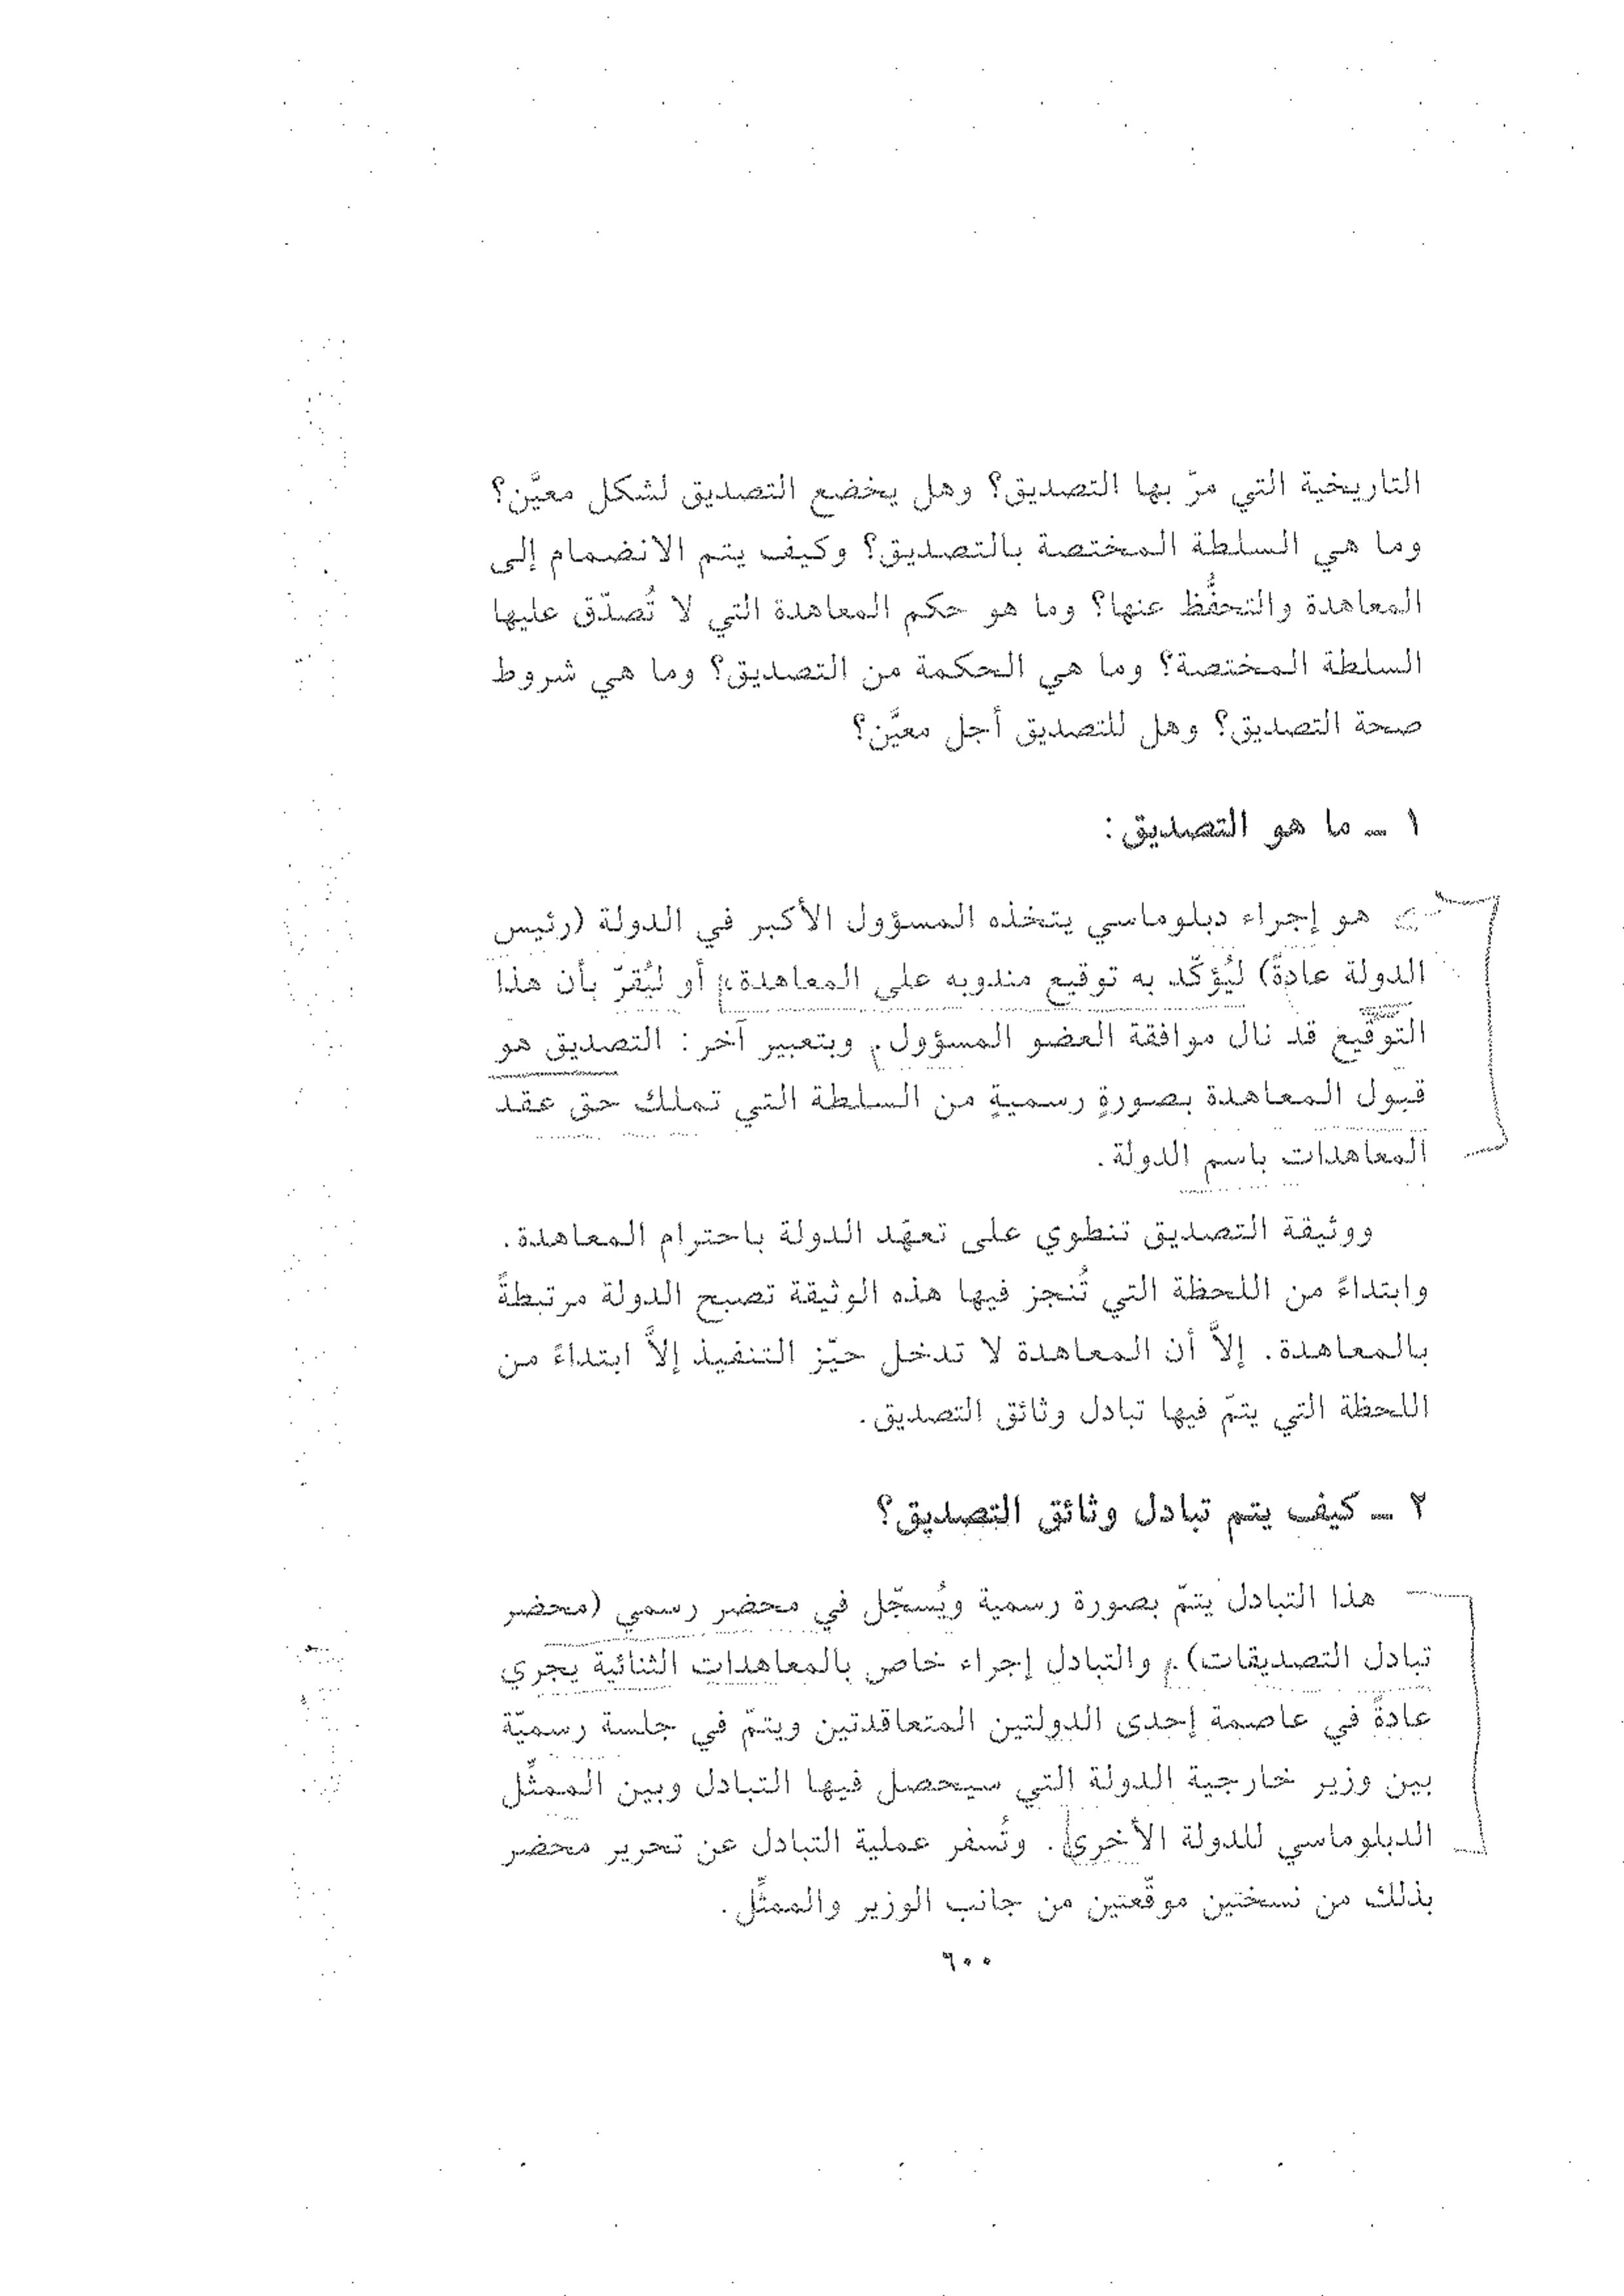 التاريخية التي مرّ بها التصديق؟ وهل يخضع التصديق لشكل معيَّن؟
وما هي السلطة المختصة بالتصديق؟ وكيف يتم الانضمام إلى
المعاهدة والتحفُّظ عنها؟ وما هو حكم المعاهدة التي لا تُصدّق عليها
السلطة المختصة؟ وما هي الحكمة من التصديق؟ وما هي شروط
صحة التصديق؟ وهل للتصديق أجل معيَّن؟
١ ــ ما هو التصديق:
هو إجراء دبلوماسي يتخذه المسؤول الأكبر في الدولة (رئيس
الدولة عادةً) ليُؤكّد به توقيع مندوبه على المعاهدة، أو ليُقرّ بأن هذا
التوقيع قد نال موافقة العضو المسؤول. وبتعبير آخر: التصديق هو
قبول المعاهدة بصورةٍ رسميةٍ من السلطة التي تملك حق عقد
المعاهدات باسم الدولة.
ووثيقة التصديق تنطوي على تعهّد الدولة باحترام المعاهدة.
وابتداءً من اللحظة التي تُنجز فيها هذه الوثيقة تصبح الدولة مرتبطةً
بالمعاهدة. إلاَّ أن المعاهدة لا تدخل حيّز التنفيذ إلاَّ ابتداءً من
اللحظة التي يتمّ فيها تبادل وثائق التصديق.
٢ ــ كيف يتم تبادل وثائق التصديق؟
هذا التبادل يتمّ بصورة رسمية ويُسجّل في محضر رسمي (محضر
تبادل التصديقات). والتبادل إجراء خاص بالمعاهدات الثنائية يجري
عادةً في عاصمة إحدى الدولتين المتعاقدتين ويتمّ في جلسة رسميّة
بين وزير خارجية الدولة التي سيحصل فيها التبادل وبين الممثِّل
الدبلوماسي للدولة الأخرى. وتُسفر عملية التبادل عن تحرير محضر
بذلك من نسختين موقّعتين من جانب الوزير والممثِّل.
٦٠٠